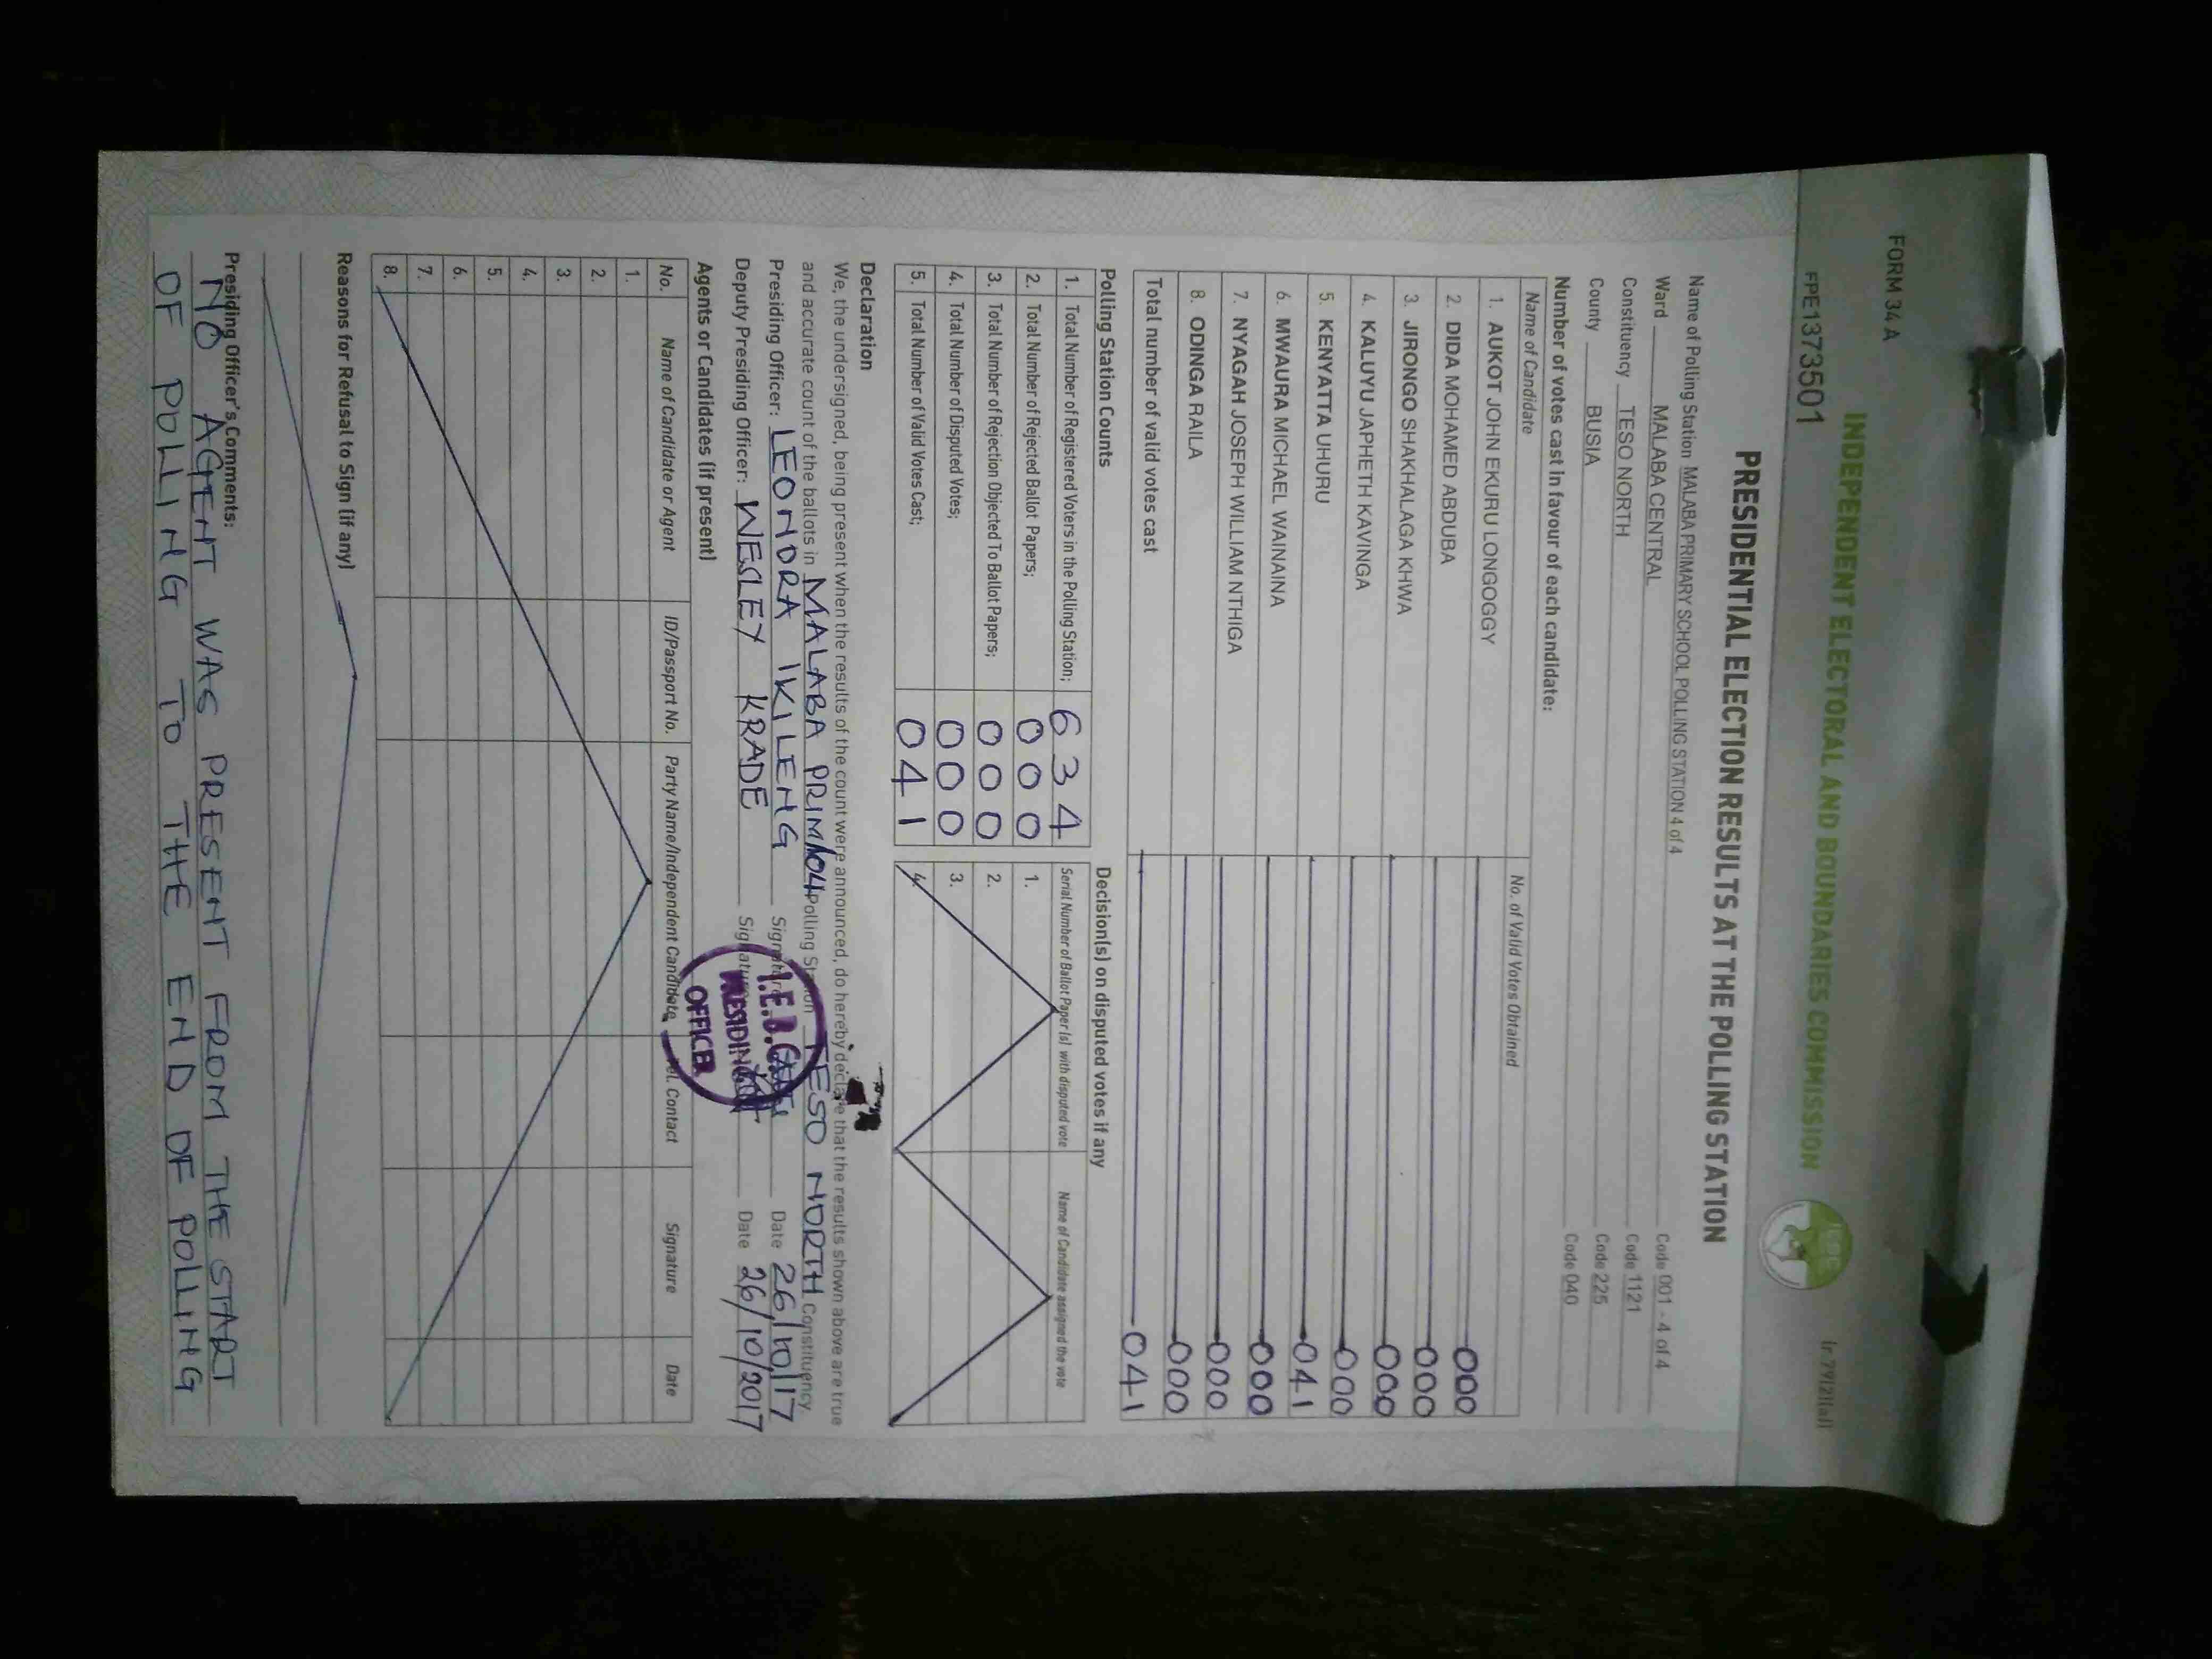 FORM 34 A
(r.79(2)(a))
INDEPENDENT ELECTORAL AND BOUNDARIES COMMISSION
IEBC
FPE1373501
PRESIDENTIAL ELECTION RESULTS AT THE POLLING STATION
Name of Polling Station MALABA PRIMARY SCHOOL POLLING STATION 4 of 4 Code 001 - 4 of 4
Ward MALABA CENTRAL Code 1121
Constituency TESO NORTH Code 225
County BUSIA Code 040
Number of votes cast in favour of each candidate:
Name of Candidate No. of Valid Votes Obtained
1. AUKOT JOHN EKURU LONGOGGY 000
2. DIDA MOHAMED ABDUBA 000
3. JIRONGO SHAKHALAGA KHWA 000
4. KALUYU JAPHETH KAVINGA 000
5. KENYATTA UHURU 041
6. MWAURA MICHAEL WAINAINA 000
7. NYAGAH JOSEPH WILLIAM NTHIGA 000
8. ODINGA RAILA 000
Total number of valid votes cast 041
Polling Station Counts
1. Total Number of Registered Voters in the Polling Station; 634
2. Total Number of Rejected Ballot Papers; 000
3. Total Number of Rejection Objected To Ballot Papers; 000
4. Total Number of Disputed Votes; 000
5. Total Number of Valid Votes Cast; 041
Decision(s) on disputed votes if any
Serial Number of Ballot Paper(s) with disputed vote Name of Candidate assigned the vote
1.
2.
3.
4.
Declaration
We, the undersigned, being present when the results of the count were announced, do hereby declare that the results shown above are true
and accurate count of the ballots in MALABA PRIM/04 Polling Station TESO NORTH Constituency.
Presiding Officer: LEONORA IKILENG Signature Date 26/10/17
Deputy Presiding Officer: WESLEY KRADE Signature Date 26/10/2017
I.E.B.C
PRESIDING
OFFICER
Agents or Candidates (if present)
No. Name of Candidate or Agent ID/Passport No. Party Name/Independent Candidate Tel. Contact Signature Date
1.
2.
3.
4.
5.
6.
7.
8.
Reasons for Refusal to Sign (if any)
Presiding Officer's Comments:
NO AGENT WAS PRESENT FROM THE START
OF POLLING TO THE END OF POLLING